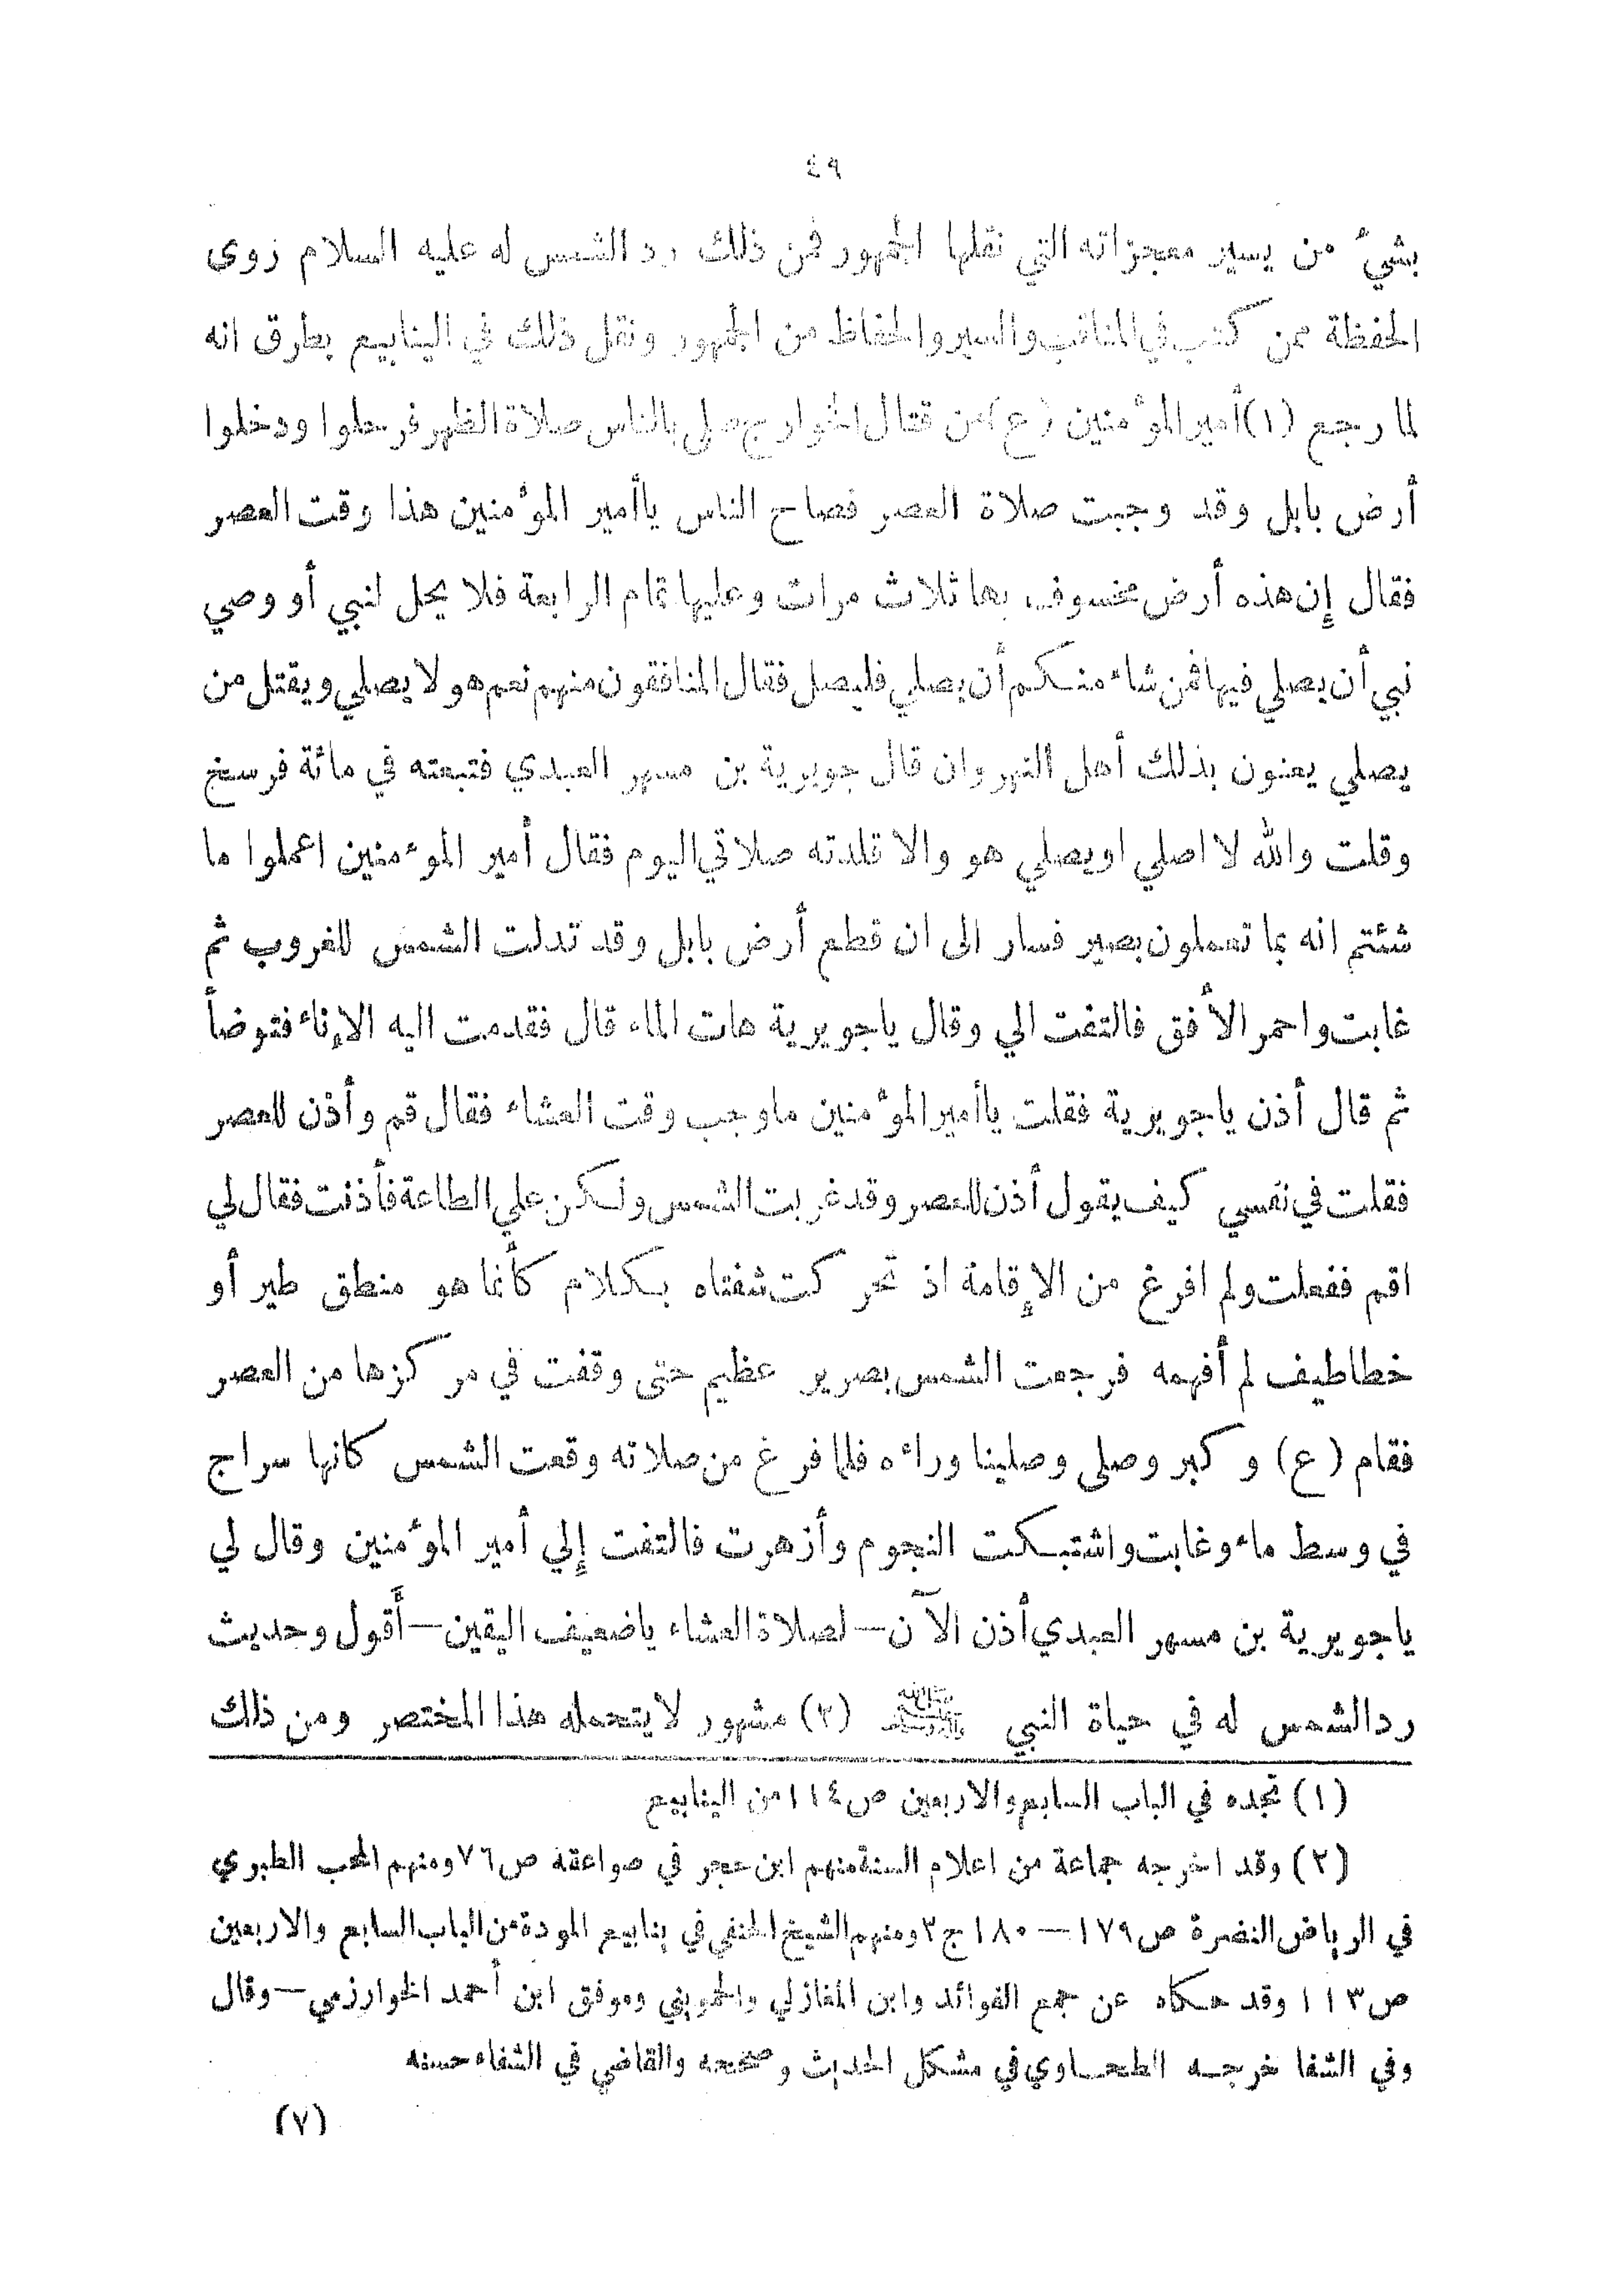 ٤٩
بشيء من يسير معجزاته التي نقلها الجمهور فمن ذلك رد الشمس له عليه السلام روى
الحفظة ممن كتب في المناقب والسير والحفاظ من الجمهور ونقل ذلك في الينابيع بطرق انه
لما رجع (١) أمير المؤمنين (ع) من قتال الخوارج صلى بالناس صلاة الظهر فرحلوا ودخلوا
أرض بابل وقد وجبت صلاة العصر فصاح الناس ياأمير المؤمنين هذا وقت العصر
فقال إن هذه أرض مخسوف بها ثلاث مرات وعليها تمام الرابعة فلا يحل لنبي أو وصي
نبي أن يصلي فيها فمن شاء منكم أن يصلي فليصل فقال المنافقون منهم نعم هو لا يصلي ويقتل من
يصلي يعنون بذلك أهل النهروان قال جويرية بن مسهر العبدي فتبعته في مائة فرسخ
وقلت والله لا اصلي او يصلي هو والا قلدته صلاتي اليوم فقال أمير الموءمنين اعملوا ما
شئتم انه بما تعملون بصير فسار الى ان قطع أرض بابل وقد تدلت الشمس للغروب ثم
غابت واحمر الأفق فالتفت الي وقال ياجويرية هات الماء قال فقدمت اليه الإناء فتوضأ
ثم قال أذن ياجويرية فقلت ياأمير المؤمنين ماوجب وقت العشاء فقال قم وأذن للعصر
فقلت في نفسي كيف يقول أذن للعصر وقد غربت الشمس ولكن علي الطاعة فأذنت فقال لي
اقم ففعلت ولم افرغ من الإقامة اذ تحركت شفتاه بكلام كأنما هو منطق طير أو
خطاطيف لم أفهمه فرجعت الشمس بصرير عظيم حتى وقفت في مركزها من العصر
فقام (ع) وكبر وصلى وصلينا وراءه فلما فرغ من صلاته وقعت الشمس كانها سراج
في وسط ماء وغابت واشتبكت النجوم وأزهرت فالتفت إلي أمير المؤمنين وقال لي
ياجويرية بن مسهر العبدي أذن الآن — لصلاة العشاء ياضعيف اليقين — أقول وحديث
رد الشمس له في حياة النبي ﷺ (٢) مشهور لا يتحمله هذا المختصر ومن ذلك
(١) تجده في الباب السابع والاربعين ص ١١٤ من الينابيع
(٢) وقد اخرجه جماعة من اعلام السنة منهم ابن حجر في صواعقه ص ٧٦ ومنهم المحب الطبري
في الرياض النضرة ص ١٧٩ — ١٨٠ ج ٢ ومنهم الشيخ الحنفي في ينابيع المودة من الباب السابع والاربعين
ص ١١٣ وقد حكاه عن جمع الفوائد وابن المغازلي والحمويني وموفق ابن أحمد الخوارزمي — وقال
وفي الشفا خرجه الطحاوي في مشكل الحديث وصححه والقاضي في الشفاء حسنه
(٧)